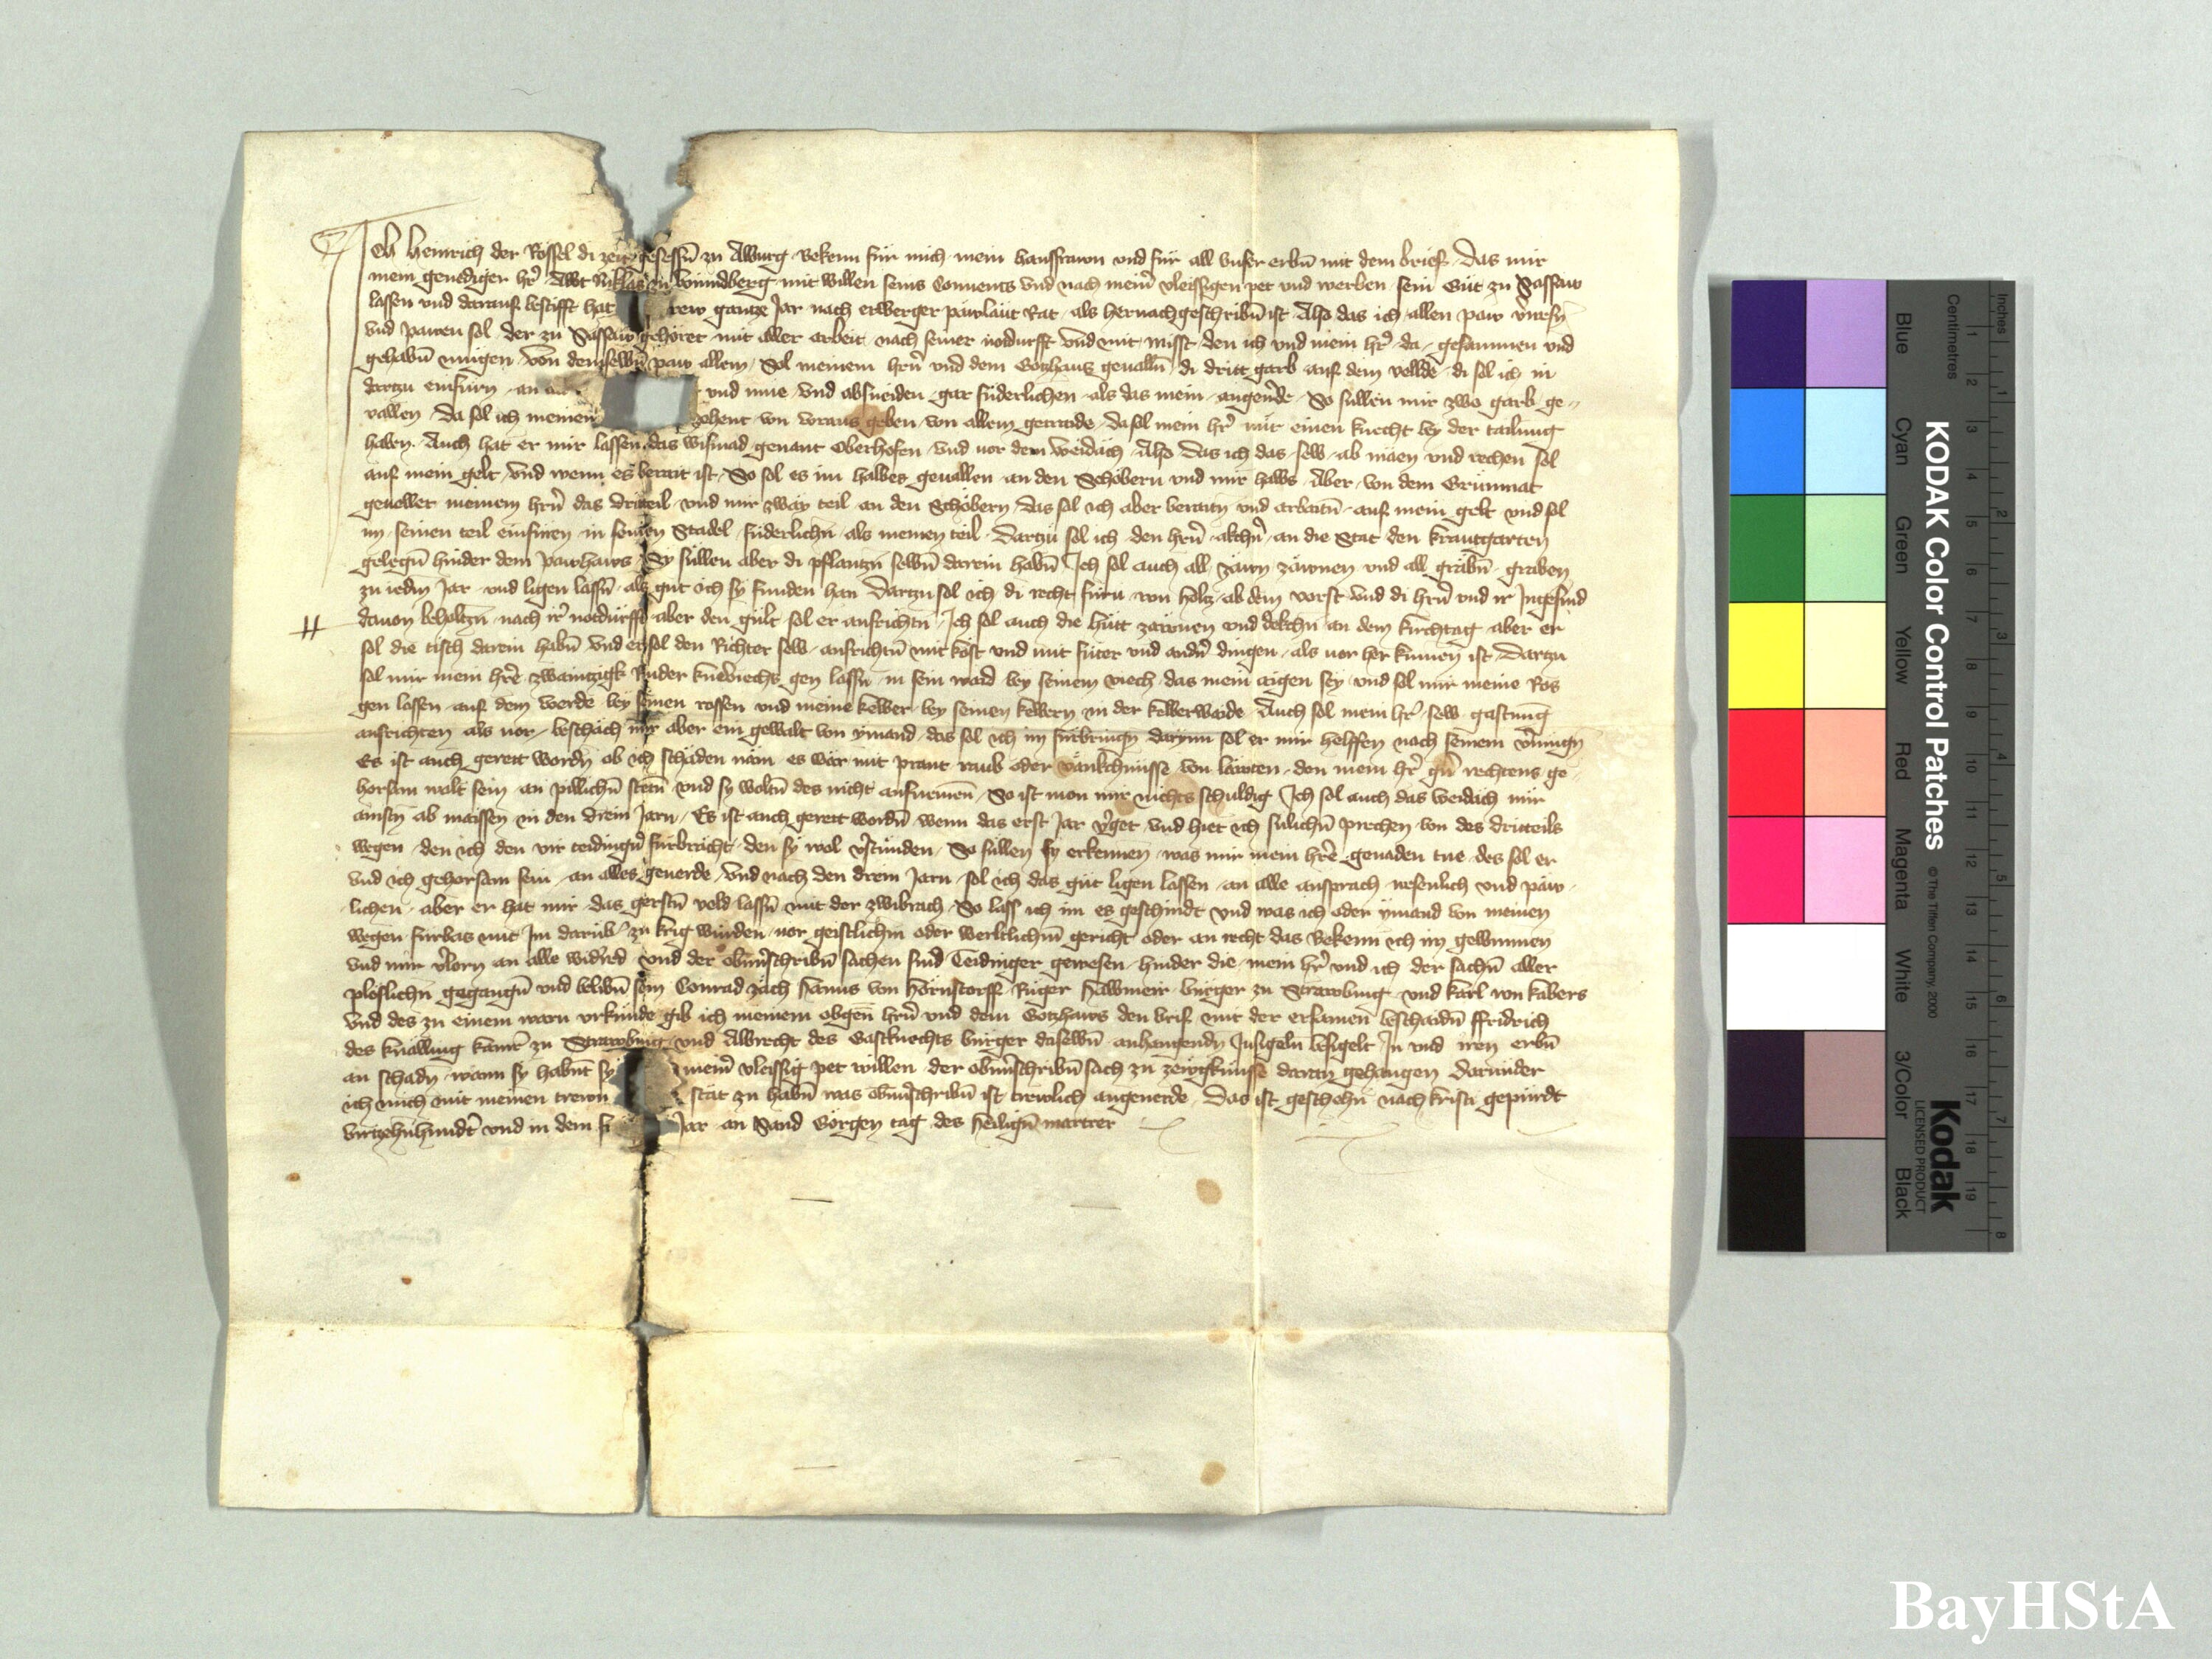 Ich Heinrich der Rössel di zeit gesessen zu Aburg Bekenn für mich mein hausfrawn und für all unser erbn mit dem brief Das mir
mein genediger hr Abbt Niklas zu Windberg mit willen seins Convents und nach meinr vleissigen pet und werben sein Güt zu Sassaw
lassen und darauf bestifft hat drew gantze Jar nach erberger pawläut Rat als hernachgeschribn ist Also das ich allen paw
und pawen sol der zu Sassaw gehöret mit aller arbeit nach seiner notdurfft und mit misst den ich und mein hr da gesammen und
gehabn mugen von demselbn paw allem Sol meinem hrn und dem Gotzhaus geualln di dritt garb auf dem vellde di sol ich in
dartzu einfürn an und mue und absneiden gar füderlichen als das mein angeuerde So sullen mir zwo garb ge
vallen Da sol ich meinem zehent von voraus geben von allem getraide da sol mein hr mir einen knecht by der tailung
haben Auch hat er mir lassen das wismad genant Oberhofen und vor dem Weidäch Also das ich das selb ab mäen und rechen sol
auf mein gelt und wenn es berait ist So sol es im halbes geuallen an den Schöbern und mir habs Aber von dem Grummat
geuellet meinem hrn das dritteil und mir zway teil an den Schöbern das sol ich aber beraitn und arbaitn auf mein gelt und sol
im seinen teil einfüren in seinen Stadel füderlichn als meinen teil Dartzu sol ich den hrn akchrn an die Stat den krautgarten
gelegn hinder dem Pawhaws Sy sullen aber di pflantzn selbn darein habn Ich sol auch all zäwn zäwnen und all gräbn graben
zu iedm Jar und ligen lassn als gut ich sy funden han Dartzu sol ich di recht fürn von holtz ab dem vorst und di hrn und ir Ingesind
dauon beholtzn nach ir notdurfft aber den gült sol er ausrichtn Ich sol auch die hütt zäwnen und dekchn an dem kirchtag aber er
sol die tisch darein habn und er sol den Richter selb ausrichtn mit kost und mit füter und andn dingen als vor her kumen ist Dartzu
sol mir mein hre zwaintzigk Rinder gen lassn in sein waid bey seinem viech das mein aigen sey und sol mir meine Ros
gen lassen auf dem werde bey seinen rossen und meine kelber bey seinen kelbern in der kelberwaide Auch sol mein hr selb gastung
ausrichten als vor beschäch mir aber ein gewalt von ymand das sol ich im fürbringn darynn sol er mir helffen nach seinem
Es ist auch gerett wordn ob ich schäden näm es wär mit prant raub oder vänkchnüsse von läwten den mein hr rechtens ge
horsam wolt sein an pillichn stetn und sy woltn des nicht aufnemen So ist man mir nichts schuldig Ich sol auch das Weidäch mir
ainstn ab maissen in den drein Jarn Es ist auch gerett wordn wenn das erst Jar verget und hiet ich sulichn prechen von des dritteils
wegen den ich den vir teidingn fürbrächt den sy wol verstunden So sullen sy erkennen was mir mein hre genaden tue des sol er
und ich gehorsam sein an alles geuerde Und nach den drein Jarn sol ich das güt ligen lassen an alle ansprach wesenlich und päw
lichen aber er hat mir das gerstn veld lassn mit der zwibrach So lass ich im es geschindt und was ich oder ymand von meinen
wegen fürbas mit Im darüb zu krig würden vor geistlichm oder werltlichm gericht oder an recht das Bekenn ich im gewunnen
und mir verlorn an alle widerred Und der obenschribn sachen sind Teidinger gewesen hinder die mein hr und ich der sachn aller
plöslichn gegangn und belibn sein Conrad zäch Hanns von Hornstorff Rüger Hallmeir burger zu Strawbing und karl von kabers
Und des zu einem warn urkunde gib ich meinem obgen hrn und dem Gotzhaws den brif mit der ersamen beschaidn ffridrich
des knölling kamr zu Strawbing und Albrecht des Gastknechts burger daselbn anhangendn Insigeln besigelt In und iren erbn
an schadn wann sy habnt sy meinr vleissig pet willen der obenschribn sach zu zewgknüsse daran gehangen Darunder
ich mich mit meinen trewn stät zu habn was obenschribn ist trewlich angeuerde Das ist geschehn nach kristi gepurdt
virtzehnhundt und in dem Jar an Sand Görgen tag des heiligen martrer
BayHStA
KODAK Color Control Patches
© The Tiffen Company, 2000
Kodak
LICENSED PRODUCT
Inches
Centimetres
Blue Cyan Green Yellow Red Magenta White 3/Color Black